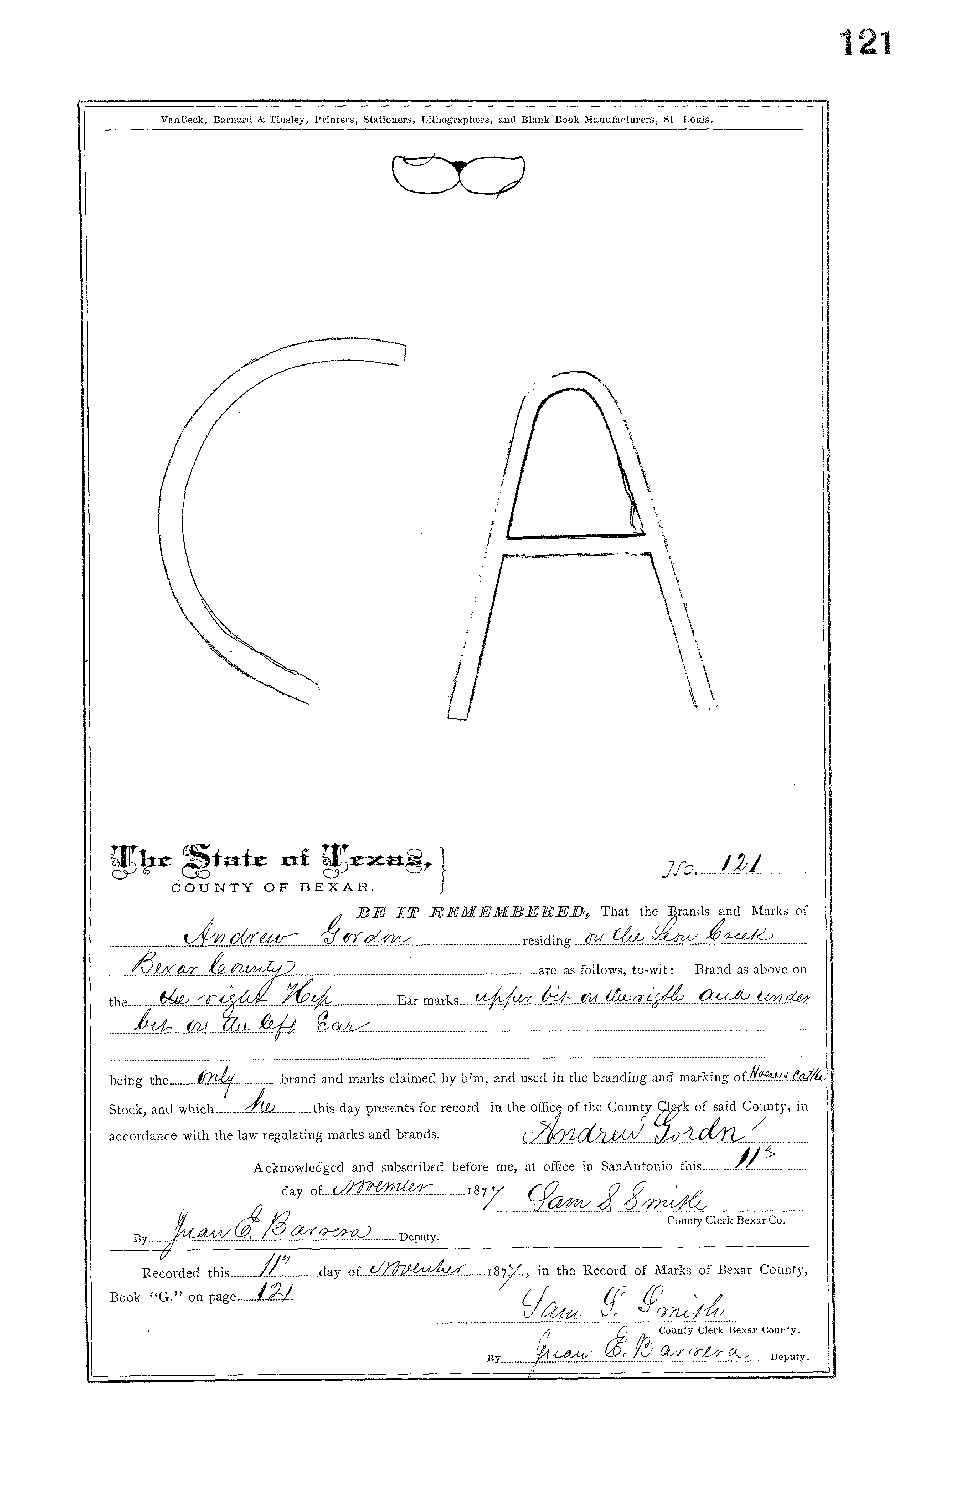 121
VanBeck, Barnard & Tinsley, Printers, Stationers, Lithographers, and Blank Book Manufacturers, St. Louis.
C A
The State of Texas,
COUNTY OF BEXAR.
No. 121
BE IT REMEMBERED, That the Brands and Marks of
Andrew Gordon residing on the Leon Creek
Bexar County are as follows, to-wit: Brand as above on
the the right Hip Ear marks upper bit on the rigth and under
bit on the left Ear
being the only brand and marks claimed by him, and used in the branding and marking of Horses Cattle
Stock, and which he this day presents for record in the office of the County Clerk of said County, in
accordance with the law regulating marks and brands. Andrew Gordn
Acknowledged and subscribed before me, at office in SanAntonio this 11th
day of November 1877 Sam S. Smith
County Clerk Bexar Co.
By Juan E. Barrera Deputy.
Recorded this 11th day of November 1877, in the Record of Marks of Bexar County,
Book "G." on page 121
Sam S. Smith
County Clerk Bexar County.
By Juan E. Barrera Deputy.